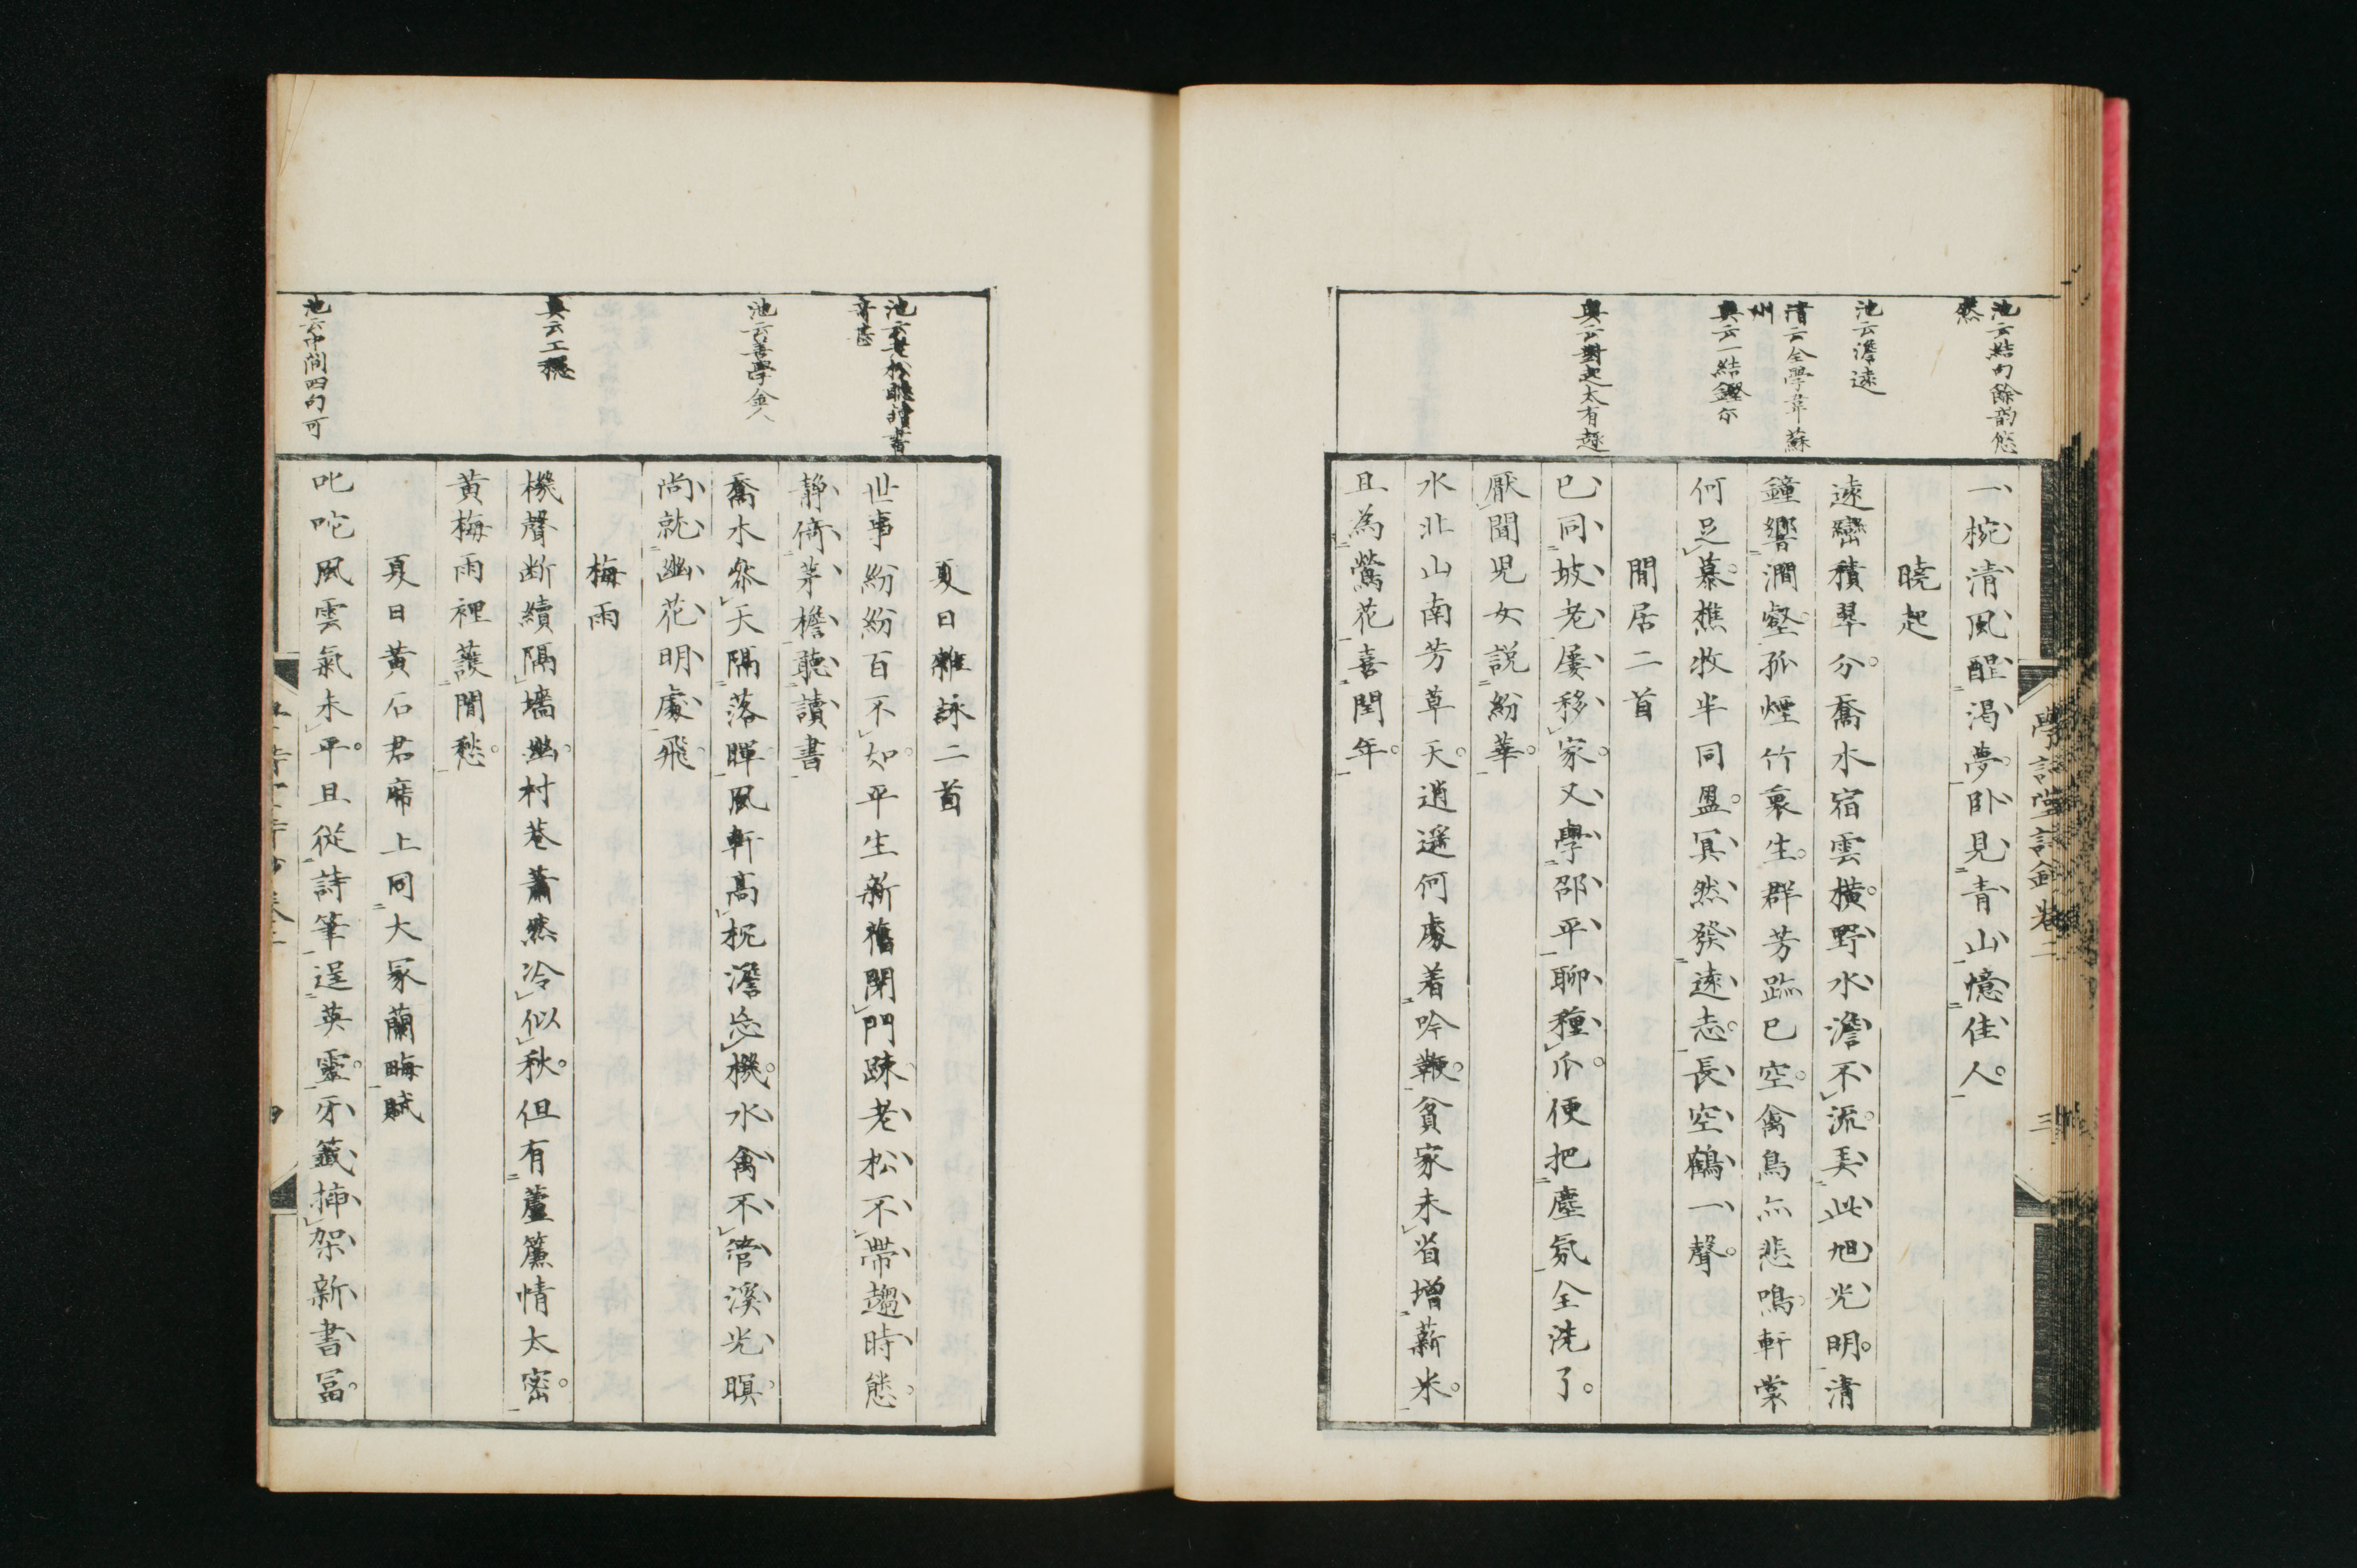 池云結句餘韵悠
然
池云澹遠
清云全學韋蘇
州
奥云一結鏗尓
奥云對起太有趣
一椀清風醒渇夢卧見青山憶佳人
曉起
遠巒積翠分喬木宿雲横野水澹不流美此旭光明清
鐘響澗壑孤煙竹裏生群芳跡已空禽鳥亦悲鳴軒裳
何足慕樵牧半同盟冥然發遠志長空鶴一聲
閒居二首
已同坡老屡移家又學邵平聊種瓜便把塵氛全洗了
厭聞児女説紛華
水北山南芳草天逍遥何處着吟鞭貧家未省増薪米
且為鶯花喜閏年
學詩堂詩鈔 卷二
三
池云老松聽讀書
奇甚
池云善學金人
奥云工穏
池云中間四句可
夏日雜詠二首
世事紛紛百不知平生新舊閉門踈老松不帶趨時態
静倚茅檐聽讀書
喬木參天隔落暉風軒高枕澹忘機水禽不管溪光暝
尚就幽花明處飛
梅雨
機聲断續隔墻幽村巷蕭然冷似秋但有蘆簾情太密
黄梅雨裡護閒愁
夏日黄石君席上同大冢蘭畮賦
叱咤風雲氣未平且從詩筆逞英靈牙籤挿架新書冨